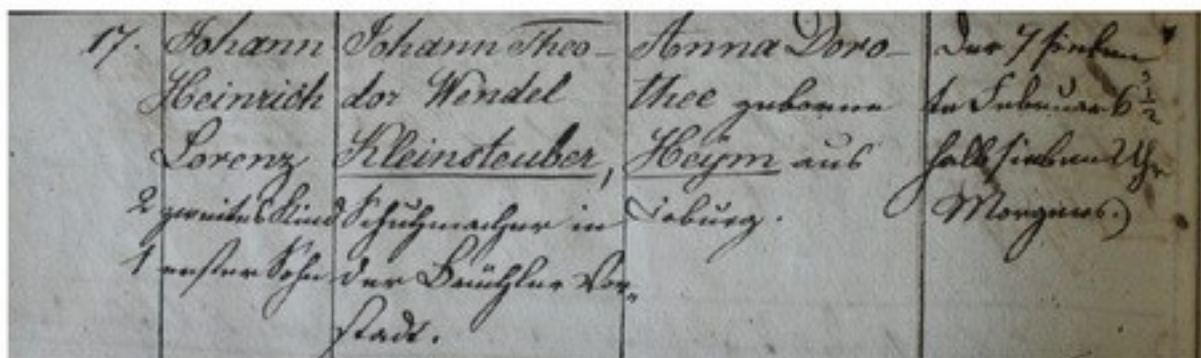 17. Johann
Heinrich
Lorenz
2 zweites Kind
1 erster Sohn
Johann Theo-
dor Wendel
Kleinsteuber,
Schuhmacher in
der Brühler Vor-
stadt.
Anna Doro-
thee geborene
Heÿm aus
Coburg.
Der 7 sieben
te Februar 6 ½
halb sieben Uhr
Morgens.)